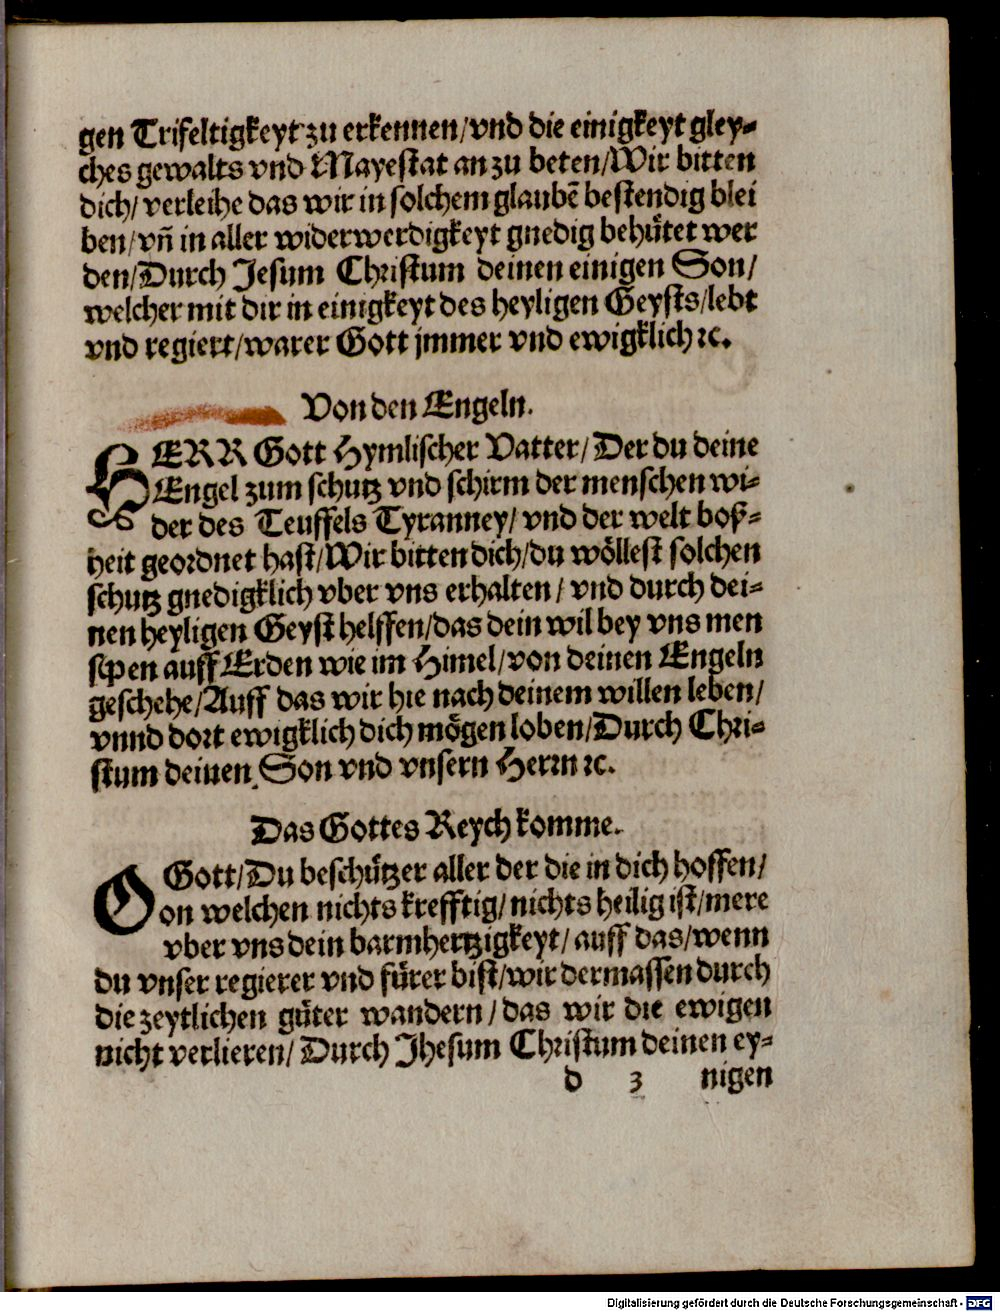 gen Trifeltigkeyt zu erkennen/vnd die einigkeyt gley-
ches gewalts vnd Mayestat an zu beten/Wir bitten
dich/verleihe das wir in solchem glaubē bestendig blei
ben/vn̄ in aller widerwerdigkeyt gnedig behuͤtet wer
den/Durch Jesum Christum deinen einigen Son/
welcher mit dir in einigkeyt des heyligen Geysts/lebt
vnd regiert/warer Gott jmmer vnd ewigklich ꝛc.
Von den Engeln.
HERR Gott Hymlischer Vatter/Der du deine
Engel zum schutz vnd schirm der menschen wi-
der des Teuffels Tyranney/vnd der welt boß-
heit geordnet hast/Wir bitten dich/du woͤllest solchen
schutz gnedigklich vber vns erhalten/vnd durch dei-
nen heyligen Geyst helffen/das dein wil bey vns men
schen auff Erden wie im Himel/von deinen Engeln
geschehe/Auff das wir hie nach deinem willen leben/
vnnd dort ewigklich dich moͤgen loben/Durch Chri-
stum deinen Son vnd vnsern Herrn ꝛc.
Das Gottes Reych komme.
O Gott/Du beschuͤtzer aller der die in dich hoffen/
on welchen nichts krefftig/nichts heilig ist/mere
vber vns dein barmhertzigkeyt/auff das/wenn
du vnser regierer vnd fuͤrer bist/wir dermassen durch
die zeytlichen guͤter wandern/das wir die ewigen
nicht verlieren/Durch Jhesum Christum deinen ey-
d 3 nigen
Digitalisierung gefördert durch die Deutsche Forschungsgemeinschaft - DFG